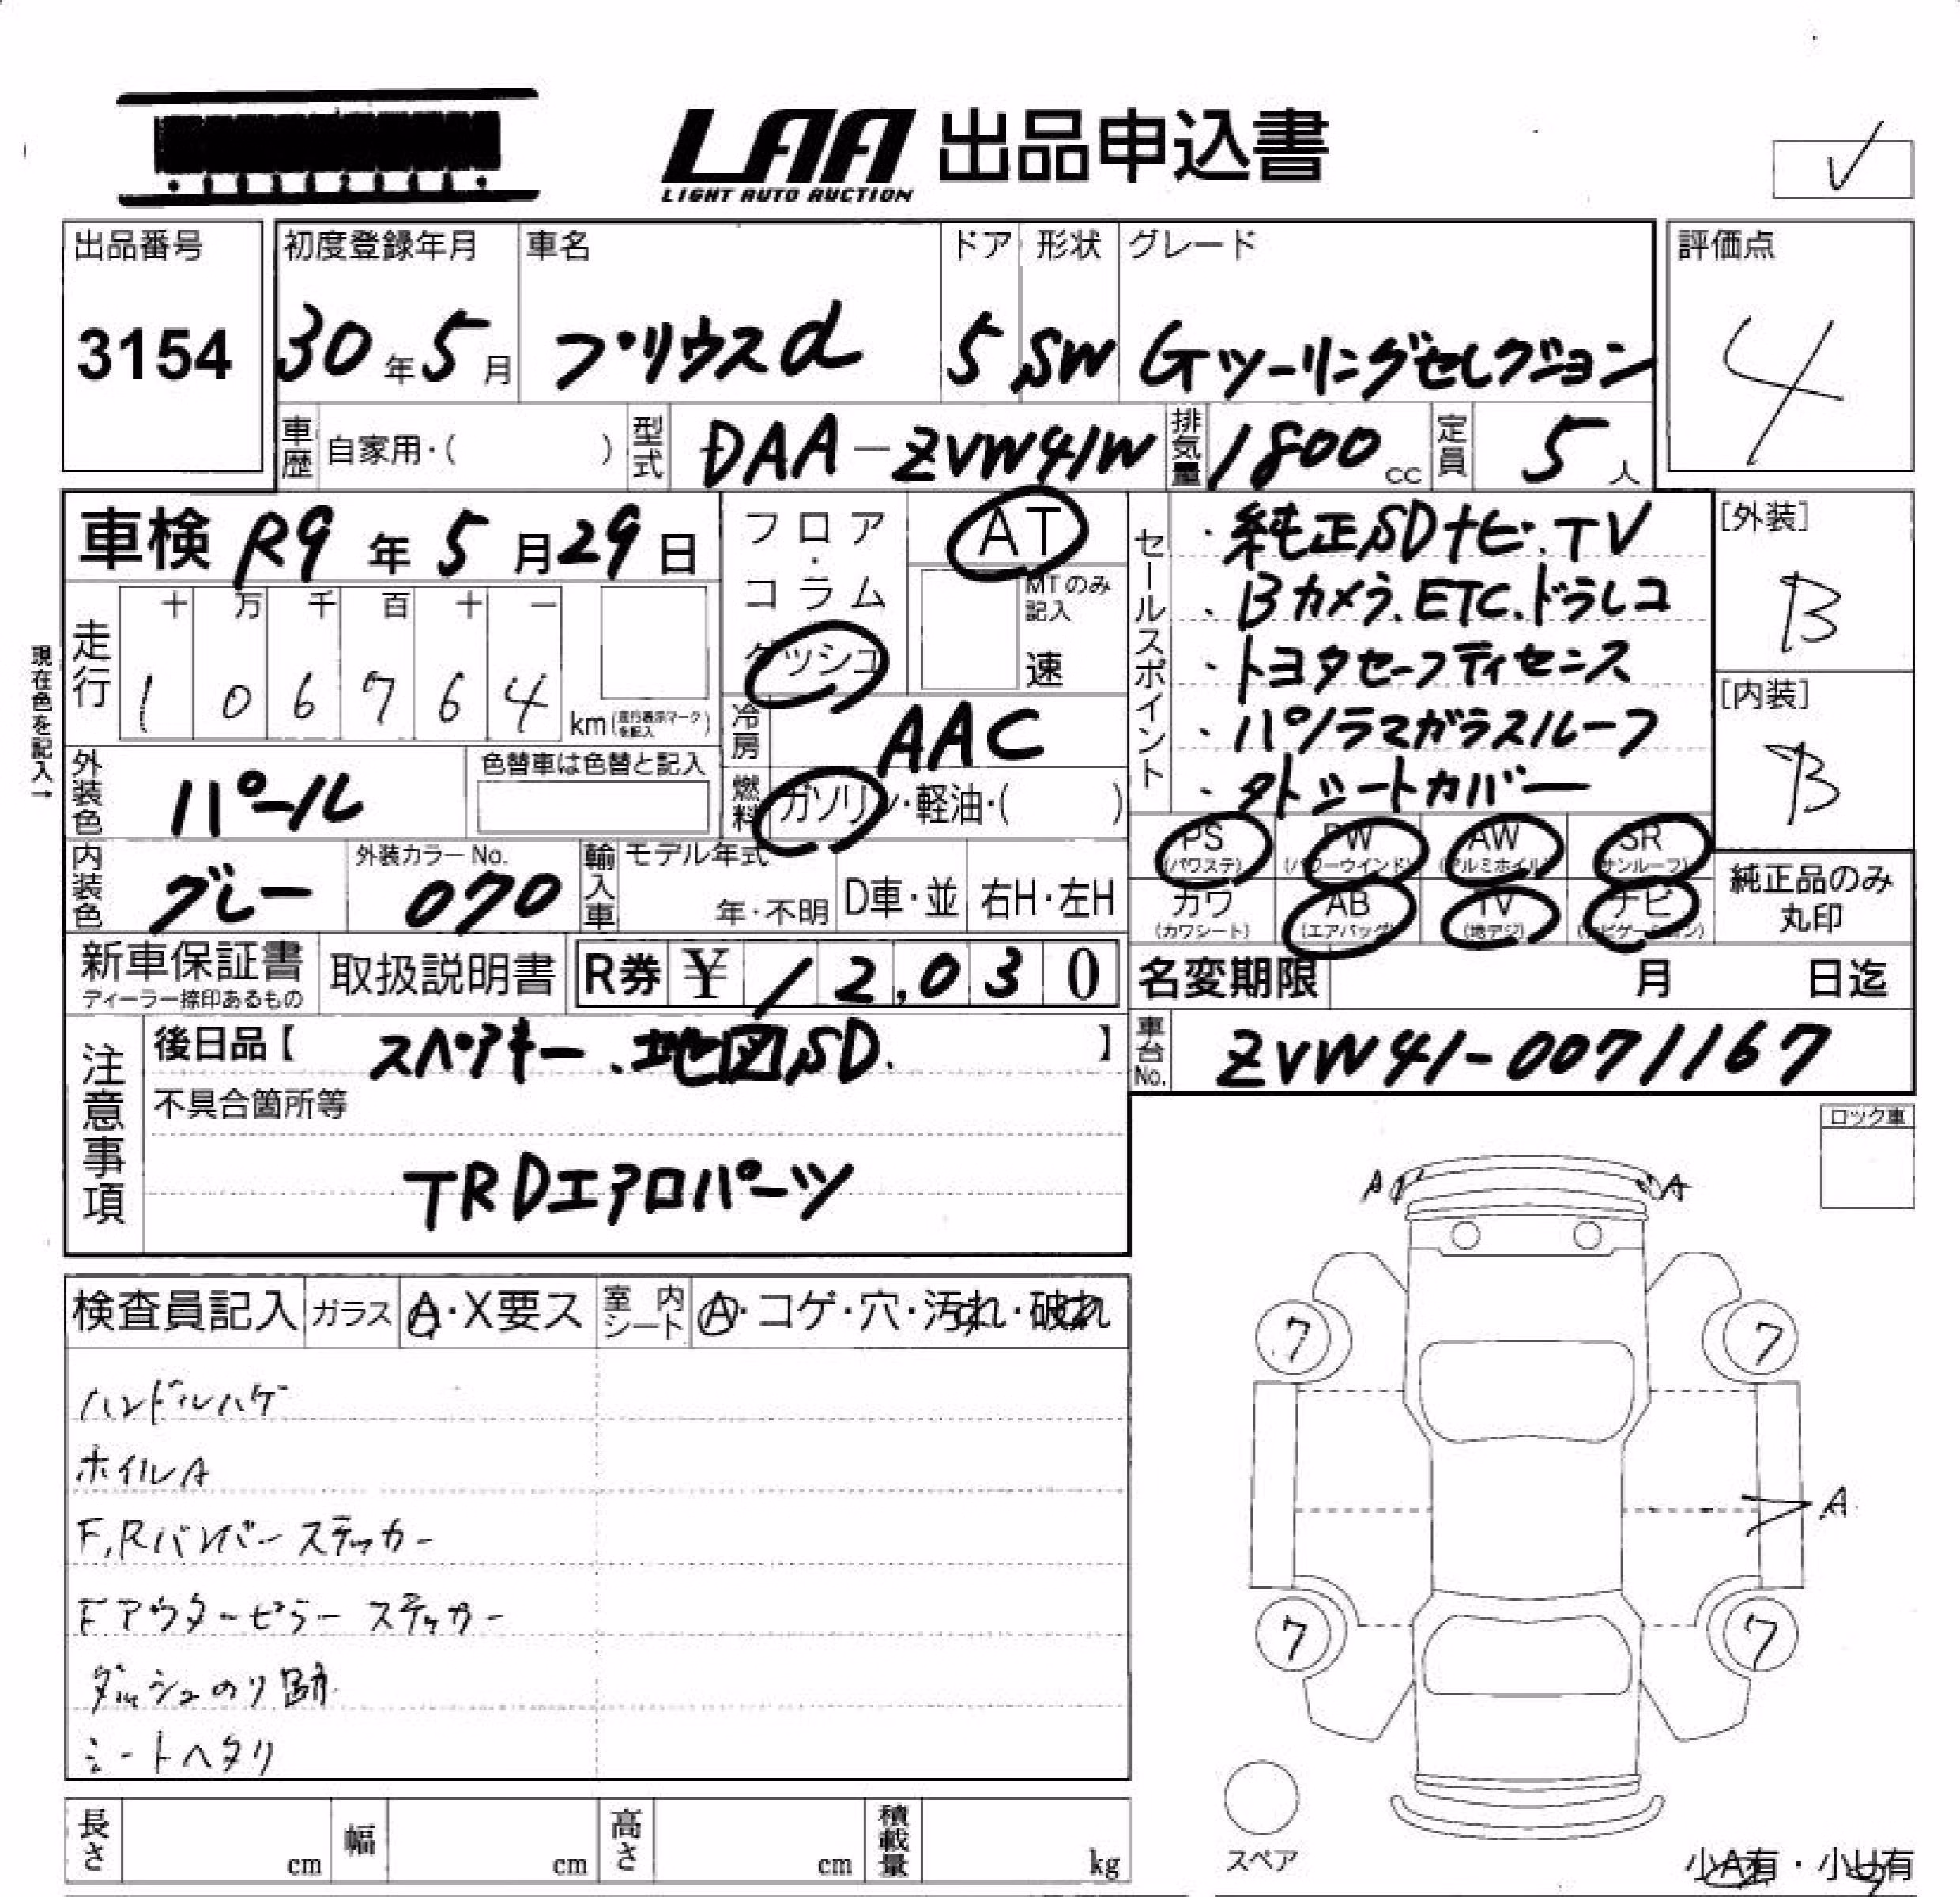 LAA 出品申込書
LIGHT AUTO AUCTION
出品番号
3154
初度登録年月
30年5月
車名
プリウスα
ドア
5
形状
SW
グレード
Gツーリングセレクション
評価点
4
車歴 自家用・( )
型式 DAA-ZVW41W
排気量 1800cc
定員 5人
車検 R9年5月29日
フロア・コラム
ダッシュ
AT
MTのみ記入
速
現在色を記入→
走行 十 万 千 百 十 一
1 0 6 7 6 4 km(走行表示マークを記入)
冷房 AAC
外装色 パール
色替車は色替と記入
燃料 ガソリン・軽油・( )
内装色 グレー
外装カラーNo.
070
輸入車 モデル年式
年・不明
D車・並
右H・左H
セールスポイント
・純正SDナビ.TV
・Bカメラ.ETC.ドラレコ
・トヨタセーフティセンス
・パノラマガラスルーフ
・シートカバー
[外装]
B
[内装]
B
PS (パワステ)
PW (パワーウインド)
AW (アルミホイル)
SR (サンルーフ)
カワ (カワシート)
AB (エアバッグ)
TV (地デジ)
ナビ (ナビゲーション)
純正品のみ
丸印
新車保証書
ディーラー捺印あるもの
取扱説明書
R券 ¥ 12,030
名変期限 月 日迄
注意事項
後日品【 スペアキー、地図SD. 】
不具合箇所等
TRDエアロパーツ
車台No. ZVW41-0071167
ロック車
検査員記入 ガラス A・X要ス 室内シート A・コゲ・穴・汚れ・破れ
ハンドルハゲ
ホイルA
F,Rバンパーステッカー
Fアウターピラーステッカー
ダッシュのり跡
シートヘタリ
A A
7 7
A
7 7
スペア
小A有・小U有
長さ cm
幅 cm
高さ cm
積載量 kg